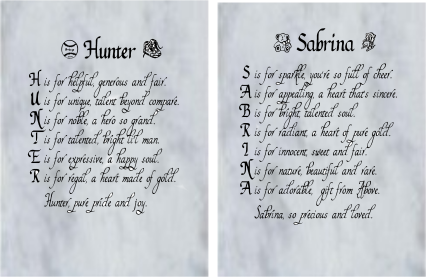 Hunter
H is for helpful, generous and fair.
U is for unique, talent beyond compare.
N is for noble, a hero so grand.
T is for talented, bright lil' man.
E is for expressive, a happy soul.
R is for regal, a heart made of gold.
Hunter, pure pride and joy.
Sabrina
S is for sparkle, you're so full of cheer.
A is for appealing, a heart that's sincere.
B is for bright, talented soul.
R is for radiant, a heart of pure gold.
I is for innocent, sweet and fair.
N is for nature, beautiful and rare.
A is for adorable, gift from Above.
Sabrina, so precious and loved.